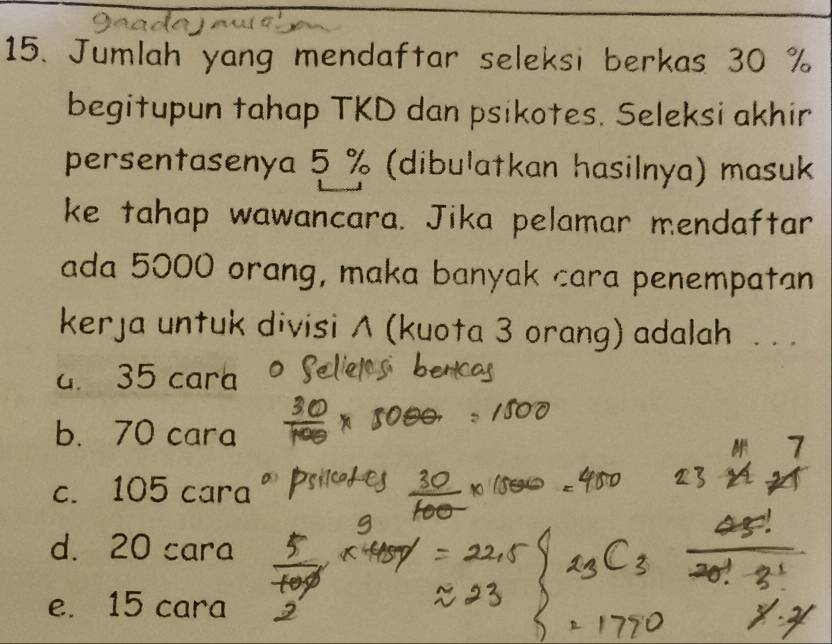 gaada jawaban
15. Jumlah yang mendaftar seleksi berkas 30 %
begitupun tahap TKD dan psikotes. Seleksi akhir
persentasenya 5 % (dibulatkan hasilnya) masuk
ke tahap wawancara. Jika pelamar mendaftar
ada 5000 orang, maka banyak cara penempatan
kerja untuk divisi A (kuota 3 orang) adalah ...
a. 35 cara
b. 70 cara
c. 105 cara
d. 20 cara
e. 15 cara
o Seleksi berkas
30/100 x 5000 = 1500
o Psikotes 30/100 x 1500 = 450
5/100 x 450 = 22,5
≈ 23
23C3
= 1770
23
7
20! 3!